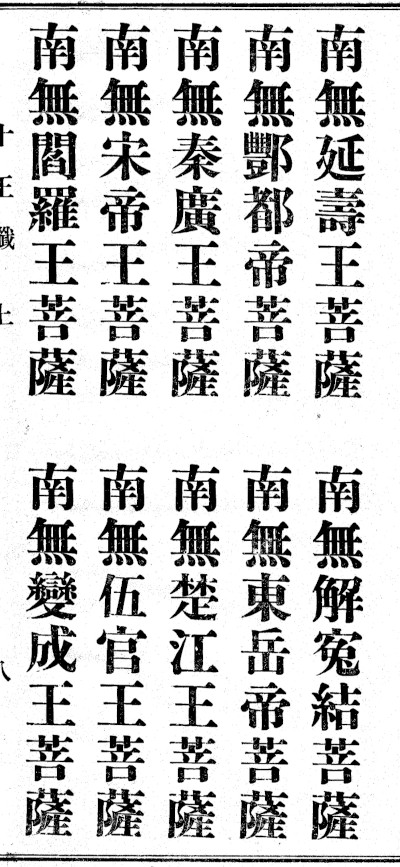 南無延壽王菩薩
南無解寃結菩薩
南無酆都帝菩薩
南無東岳帝菩薩
南無秦廣王菩薩
南無楚江王菩薩
南無宋帝王菩薩
南無伍官王菩薩
南無閻羅王菩薩
南無變成王菩薩
十王懺 上
八